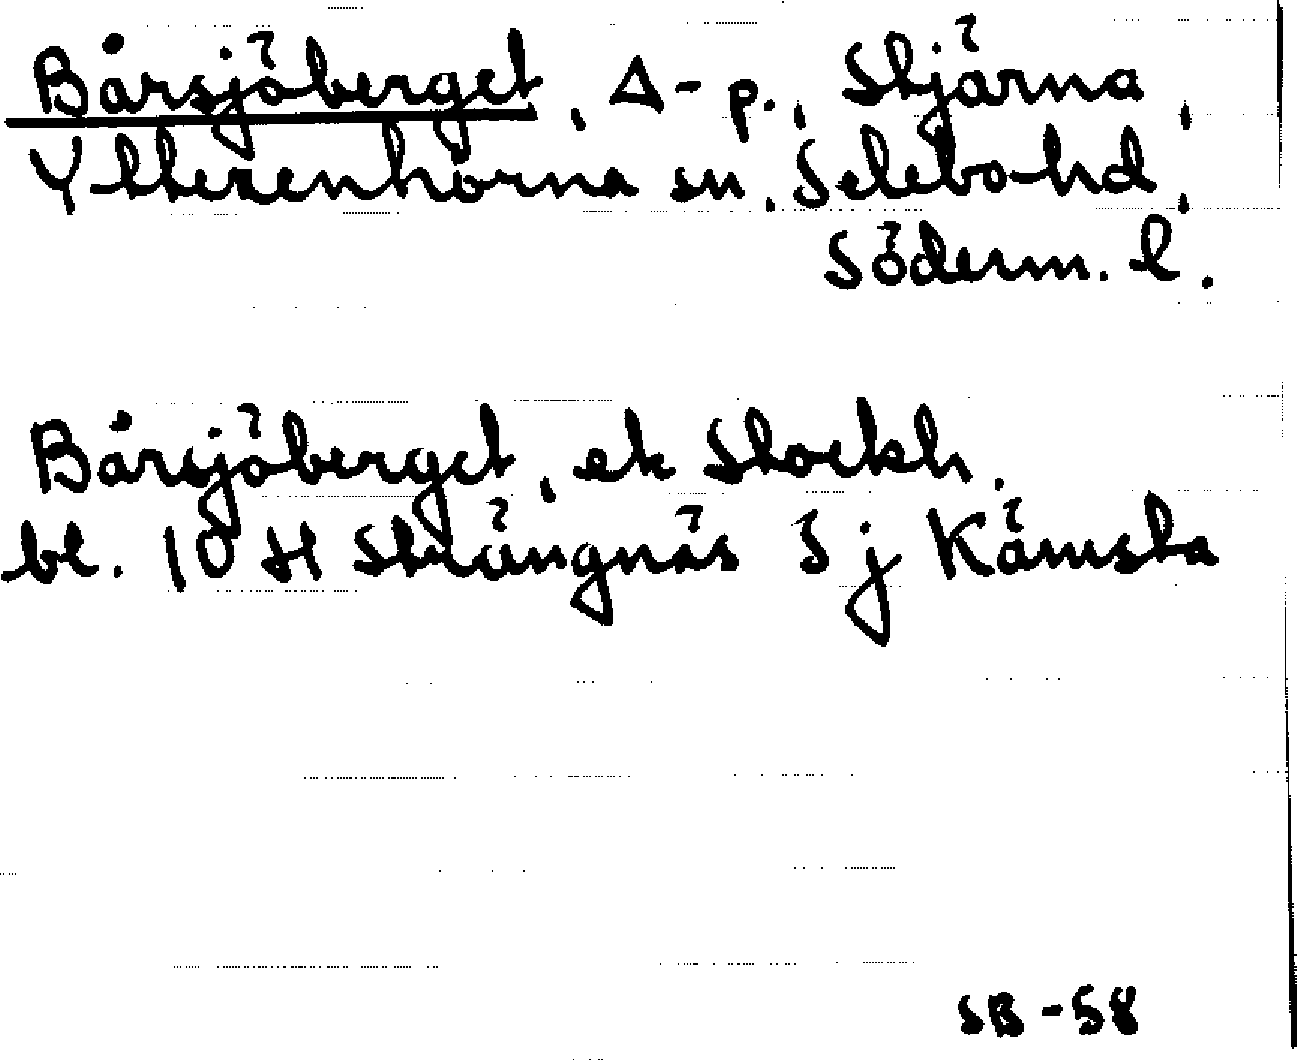 Bårsjöberget, Δ-p., Stjärna,
Ytterenhörna sn, Selebo hd,
Söderm. l.
Bårsjöberget, ek Stockh.
bl. 10 H Strängnäs 3 j Kämsta
SB-58